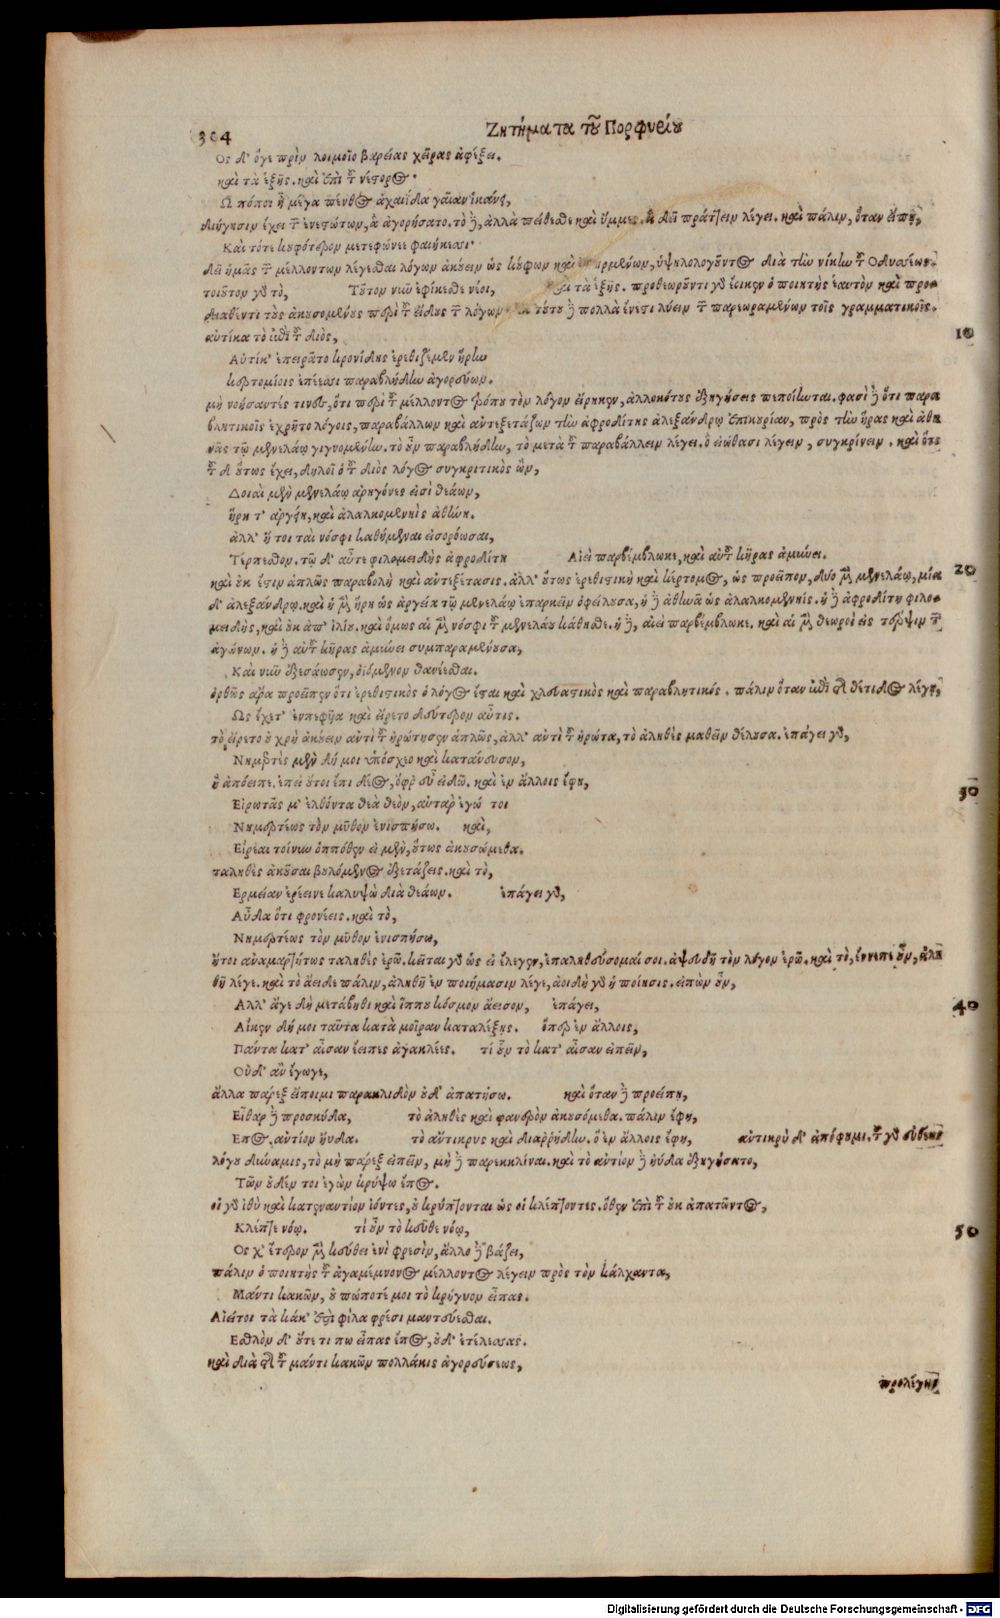 304 Ζητήματα τοῦ Πορφυρίου
Ος δ' ὅγε πρὶν λοιμοῖο βαρείας χεῖρας ἀφέξει.
καὶ τὰ ἑξῆς. καὶ ἐπὶ τοῦ νέστορος·
Ω πόποι ἦ μέγα πένθος ἀχαιΐδα γαῖαν ἱκάνει,
διήγησιν ἔχει τῶν ἐνεστώτων, ἃ ἀγορήσατο. τὸ δὲ, ἀλλὰ πείθεσθε καὶ ὔμμες. ἃ δεῖ πράττειν λέγει. καὶ πάλιν, ὅταν εἴπῃ,
Καὶ τότε κουφότερον μετεφώνεε φαιήκεσσι·
δεῖ ἡμᾶς τῶν μέλλοντων λέγεσθαι λόγων ἀκούειν ὡς κούφων καὶ ὑψηλολογοῦντος διὰ τὴν νίκην τοῦ Οδυσσέως.
τοιοῦτον γὰρ τὸ, Τοῦτον νῦν ἐφίκεσθε νέοι, καὶ τὰ ἑξῆς. προθεωροῦντι γὰρ ἔοικεν ὁ ποιητὴς ἑαυτὸν καὶ προ-
διαθέντι τοὺς ἀκουσομένους περὶ τοῦ εἴδους τῶν λόγων τούτου δὲ πολλὰ ἔνεστι λύειν τῶν παρεωραμένων τοῖς γραμματικοῖς.
αὐτίκα τὸ ἐπὶ τοῦ διὸς, 10
Αὐτίκ' ἐπειρᾶτο κρονίδης ἐρεθιζέμεν ἥρην
κερτομίοις ἐπέεσσι παραβλήδην ἀγορεύων.
μὴ νοήσαντές τινες, ὅτι περὶ τοῦ μέλλοντος τρόπου τὸν λόγον εἴρηκεν, ἀλλοκότους ἐξηγήσεις πεποίηνται. φασὶ δὲ ὅτι παρα
βλητικοῖς ἐχρῆτο λόγοις, παραβάλλων καὶ ἀντεξετάζων τὴν ἀφροδίτης ἀλεξάνδρῳ ἐπικουρίαν, πρὸς τὴν ἥρας καὶ ἀθη
νᾶς τῷ μενελάῳ γιγνομένην. τὸ οὖν παραβλήδην, τὸ μετὰ τοῦ παραβάλλειν λέγει. ὃ εἰώθασι λέγειν, συγκρίνειν. καὶ ὅτι
τοῦθ' οὕτως ἔχει, δηλοῖ ὁ τοῦ διὸς λόγος συγκριτικὸς ὢν,
Δοιαὶ μὲν μενελάῳ ἀρηγόνες εἰσὶ θεάων,
ἥρη τ' ἀργείη, καὶ ἀλαλκομενηῒς ἀθήνη.
ἀλλ' ἤτοι ταὶ νόσφι καθήμεναι εἰσορόωσαι,
Τέρπεσθον. τῷ δ' αὖτε φιλομειδὴς ἀφροδίτη Αἰεὶ παρμέμβλωκε, καὶ αὐτοῦ κῆρας ἀμύνει.
καὶ οὐκ ἔστιν ἁπλῶς παραβολὴ καὶ ἀντεξέτασις. ἀλλ' οὕτως ἐρεθιστικὴ καὶ κέρτομος, ὡς προεῖπον, δύο μὲν μενελάῳ, μία 20
δ' ἀλεξάνδρῳ. καὶ ἡ μὲν ἥρη ὡς ἀργεία τῷ μενελάῳ ἐπαρκεῖν ὀφείλουσα, ἡ δὲ ἀθηνᾶ ὡς ἀλαλκομενηΐς. ἡ δὲ ἀφροδίτη φιλο-
μειδὴς, καὶ οὐκ ἀπ' ἰλίου. καὶ ὅμως αἱ μὲν νόσφι τοῦ μενελάου κάθησθε. ἡ δὲ, αἰεὶ παρμέμβλωκε. καὶ αἱ μὲν θεωροὶ εἰς τέρψιν τῶν
ἀγώνων. ἡ δὲ αὐτοῦ κῆρας ἀμύνει συμπαραμένουσα,
Καὶ νῦν ἐξεσάωσεν, ὀϊόμενον θανέεσθαι.
ὀρθῶς ἄρα προεῖπεν ὅτι ἐρεθιστικὸς ὁ λόγος ἔσται καὶ χλευαστικὸς καὶ παραβλητικός. πάλιν ὅταν ἐπὶ τῆς θέτιδος λέγῃ,
Ως ἔχετ' ἐμπεφυῖα καὶ εἴρετο δεύτερον αὖτις.
τὸ εἴρετο οὐ χρὴ ἀκούειν ἀντὶ τοῦ ἠρώτησεν ἁπλῶς, ἀλλ' ἀντὶ τοῦ ἠρώτα, τὸ ἀληθὲς μαθεῖν θέλουσα. ἐπάγει γὰρ,
Νημερτὲς μὲν δή μοι ὑπόσχεο καὶ κατάνευσον,
ἢ ἀπόειπε. ἐπεὶ οὔτοι ἔπι δέος, ὄφρ' εὖ εἰδῶ. καὶ ἐν ἄλλοις ἔφη,
Εἰρωτᾷς μ' ἐλθόντα θεὰ θεὸν, αὐτὰρ ἐγώ τοι 30
Νημερτέως τὸν μῦθον ἐνισπήσω. καὶ,
Εἴρεαι τοίνυν ὁππόθεν εἰ μὲν, οὕτως ἀκουσώμεθα.
ταληθὲς ἀκοῦσαι βουλόμενος ἐξετάζεις. καὶ τὸ,
Ερμείαν ἐρέεινε καλυψὼ δῖα θεάων. ἐπάγει γὰρ,
Αὖδα ὅτι φρονέεις. καὶ τὸ,
Νημερτέως τὸν μῦθον ἐνισπήσω,
ἤτοι ἀναμαρτήτως ταληθὲς ἐρῶ. κεῖται γὰρ ὡς εἰ ἔλεγεν, ἐπαληθεύσομαί σοι. ἀψευδῆ τὸν λόγον ἐρῶ. καὶ τὸ, ἔννεπε οὖν, ἀλη
θῆ λέγε. καὶ τὸ ἄειδε πάλιν, ἀληθῆ ἐν ποιήμασιν λέγε, ἀοιδὴ γὰρ ἡ ποίησις. εἰπὼν οὖν,
Αλλ' ἄγε δὴ μετάβηθι καὶ ἵππου κόσμον ἄεισον, ἐπάγει, 40
Αἴκεν δή μοι ταῦτα κατὰ μοῖραν καταλέξῃς. ὅπερ ἐν ἄλλοις,
Πάντα κατ' αἶσαν ἔειπες ἀγακλέες. τί οὖν τὸ κατ' αἶσαν εἰπεῖν,
Οὐδ' ἂν ἔγωγε,
ἄλλα παρὲξ εἴποιμι παρακλιδὸν οὐδ' ἀπατήσω. καὶ ὅταν δὲ προείπῃ,
Εἶθαρ δὲ προσηύδα, τὸ ἀληθὲς καὶ φανερὸν ἀκουσόμεθα. πάλιν ἔφη,
Επος. ἀντίον ηὔδα. τὸ αὔτικρυς καὶ διαρρήδην. ὃ ἐν ἄλλοις ἔφη, ἀντικρὺ δ' ἀπόφημι. τοῦ γὰρ
λόγου δύναμις, τὸ μὴ παρὲξ εἰπεῖν, μὴ δὲ παρεκκλίναι. καὶ τὸ ἀντίον δὲ ηὔδα ἐξηγήσατο,
Τῶν οὐδέν τοι ἐγὼν κρύψω ἔπος.
οἱ γὰρ ἰθὺ καὶ κατεναντίον ἰόντες, οὐ κρύπτονται ὡς οἱ κλέπτοντες. ὅθεν ἐπὶ τοῦ οὐκ ἀπατῶντος,
Κλέπτε νόῳ. τί οὖν τὸ κεῦθε νόῳ, 50
Ος χ' ἕτερον μὲν κεύθει ἐνὶ φρεσὶν, ἄλλο δὲ βάζει,
πάλιν ὁ ποιητὴς τοῦ ἀγαμέμνονος μέλλοντος λέγειν πρὸς τὸν κάλχαντα,
Μάντι κακῶν, οὐ πώποτέ μοι τὸ κρήγυον εἶπας.
Αἰεί τοι τὰ κάκ' ἐστὶ φίλα φρεσὶ μαντεύεσθαι.
Εσθλὸν δ' οὔτε τί πω εἶπας ἔπος, οὐδ' ἐτέλεσσας.
καὶ διὰ τὴν τοῦ μάντι κακῶν πολλάκις ἀγορεύσεως,
προλέγει
Digitalisierung gefördert durch die Deutsche Forschungsgemeinschaft - DFG